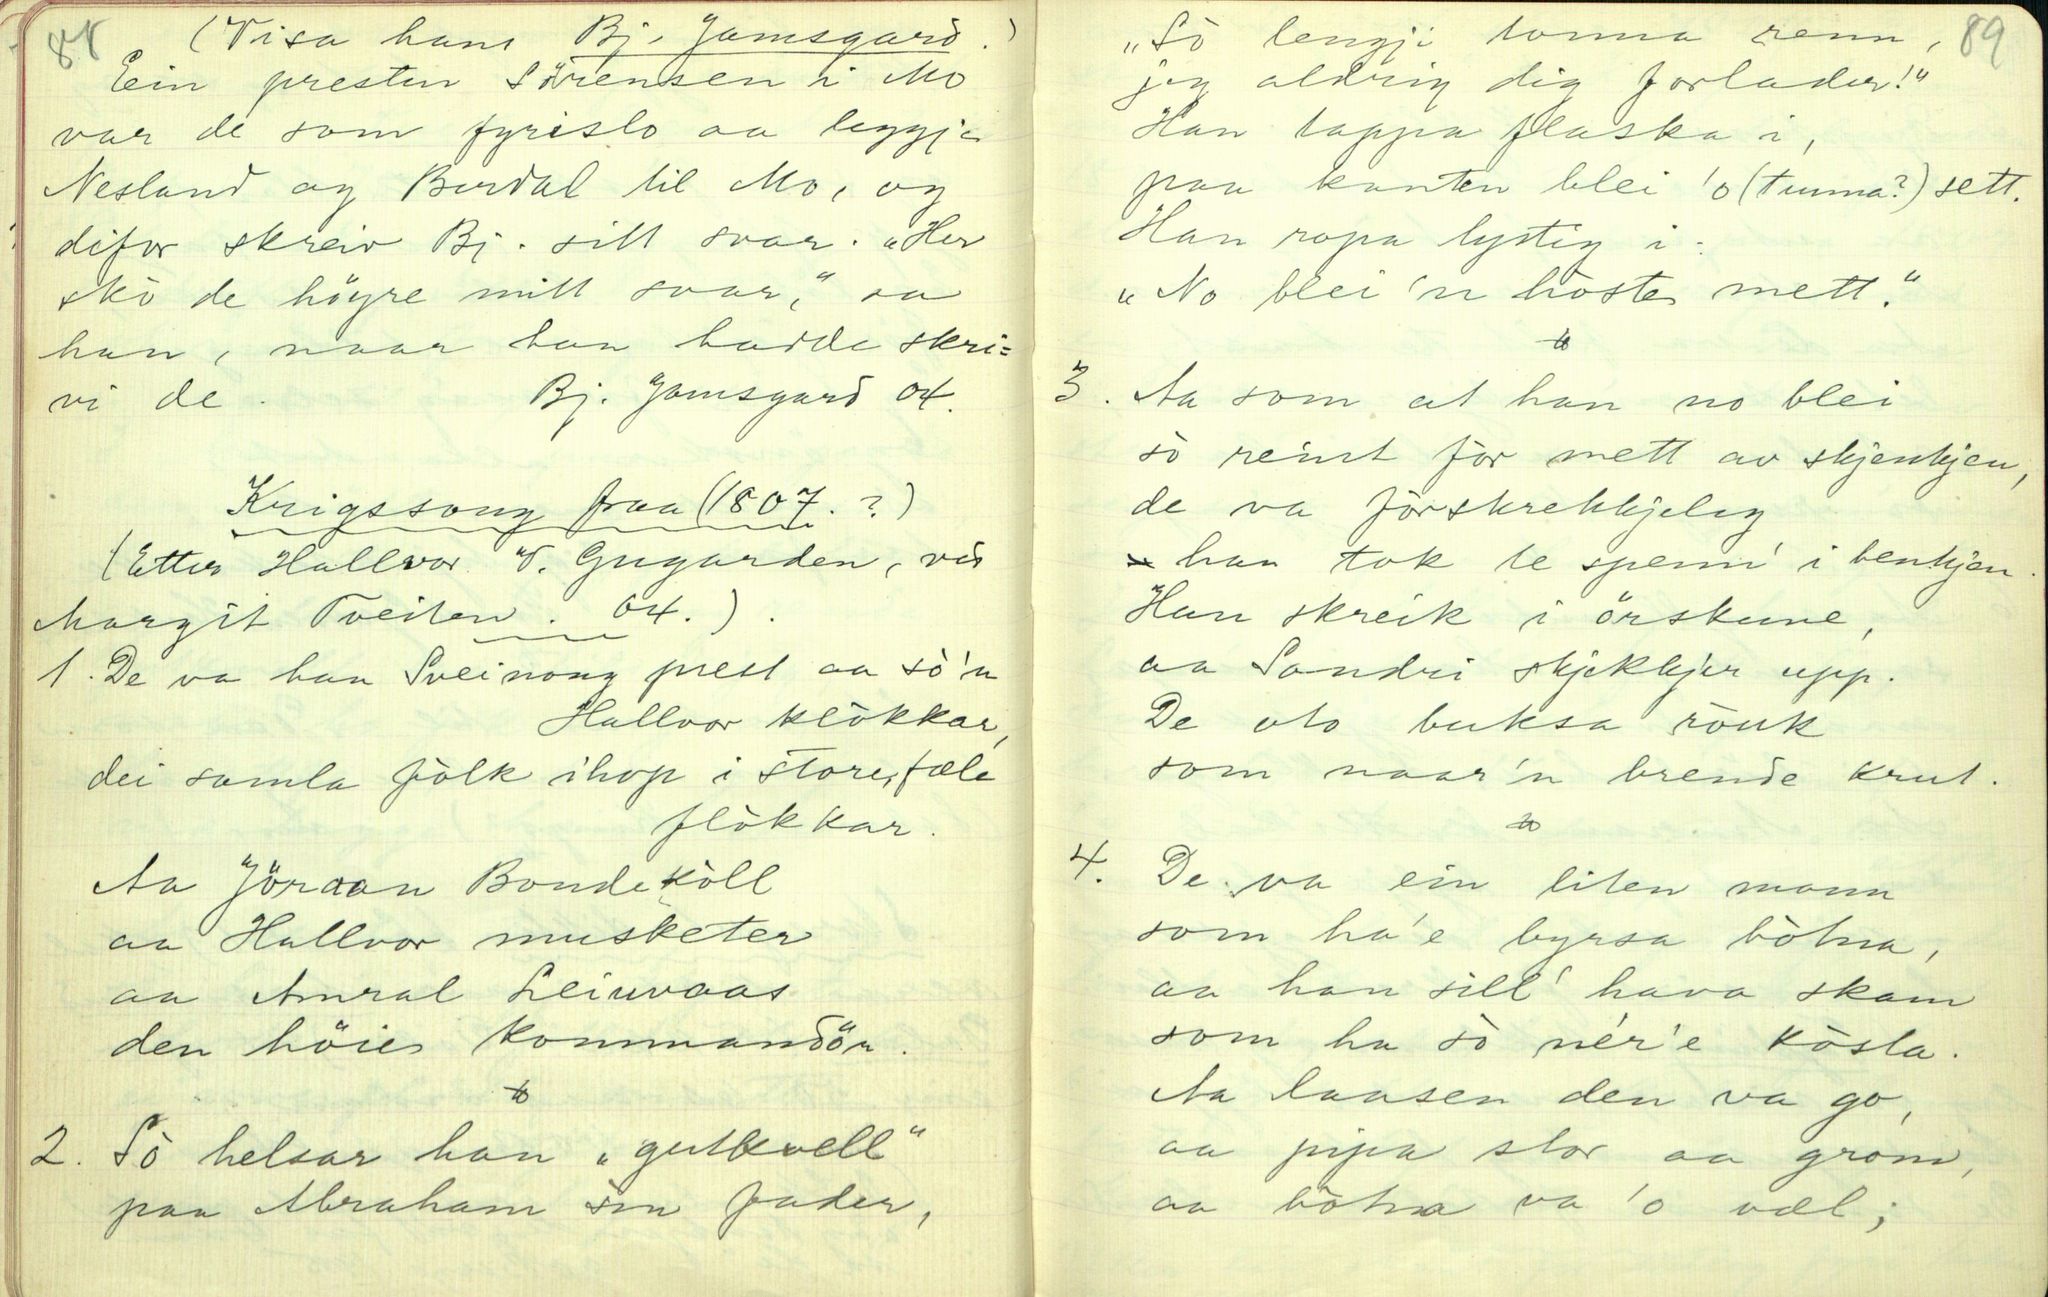 88
(Visa hans Bj. Jamsgard.)
Ein presten Sörensen i Mo
var de som fyrislo aa leggja
Nesland og Bordal til Mo, og
difor skreiv Bj. sitt svar. „Her
skò de höyre mitt svar,“ sa
han, naar han hadde skri=
vi de. Bj. Jamsgard 04.
Krigssong fraa (1807.?)
(Etter Hallvor V. Gugarden, ved
Margit Tveiten. 04.).
1. De va han Sveinong prest aa sò'n
Hallvor klòkkar,
dei samla fòlk ihop i store, fæle
flòkkar.
Aa Jöraan Bondekòll
aa Hallvor musketer
aa Amral Leiuvaas
den höie kommandör.
2. Sò helsar han „gutkvell“
paa Abraham sin fader,
89
„Sò lengji tonna renn,
jeg aldrig dig forlader!“
Han tappa flaska i,
paa kanten blei 'o (tunna?) sett.
Han ropa lystig i:
„No blei 'n hòste mett.“
3. Aa som at han no blei
sò reint fòr mett av skjenkjen,
de va fòrskrekkjeleg
han tok te spenn' i benkjen.
Han skreik i örskune,
aa Sondri skjekkjer upp.
De oto buksa ròuk
som naar'n brende krut.
4. De va ein liten mann
som ha'e byrsa bòtna,
aa han sill' hava skam
som ha sò ne'r'e kòsta.
Aa laasen den va go,
aa pipa stor aa grom,
aa bòtna va 'o væl;